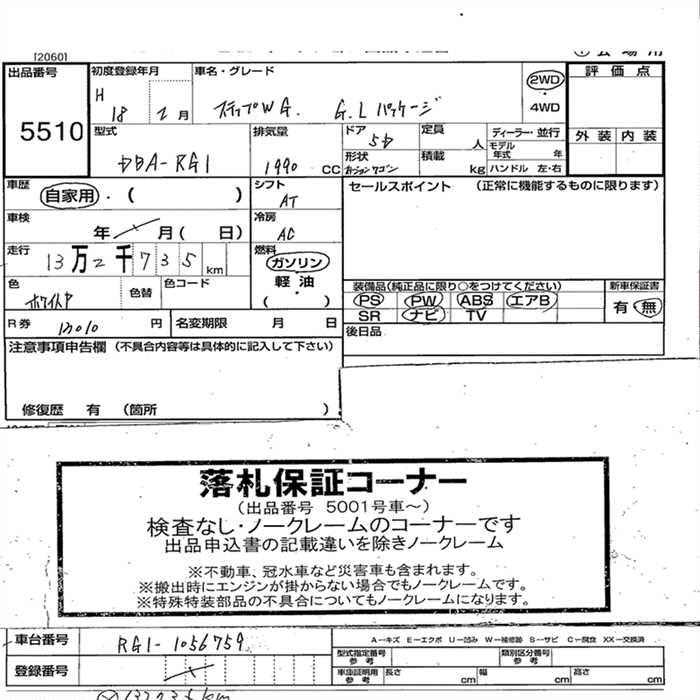 [2060]
出品番号 初度登録年月 車名・グレード 評価点
5510 H 18 2月 ステップWG. G.Lパッケージ 2WD
・
4WD
外装 内装
型式 排気量 ドア 定員 ディーラー・並行
DBA-RG1 1990 CC 5D 人 モデル年式 年
形状 積載 kg ハンドル 左・右
車歴 自家用・( ) シフト AT セールスポイント (正常に機能するものに限ります)
車検 年 月( 日) 冷房 AC
走行 13万2千735km 燃料 ガソリン
軽油
・( )
色 ホワイトP 色替 色コード
装備品(純正品に限り○をつけてください) 新車保証書
PS PW ABS エアB 有 無
SR ナビ TV
R券 13010円 名変期限 月 日 後日品
注意事項申告欄 (不具合内容等は具体的に記入して下さい)
修復歴 有 (箇所 )
落札保証コーナー
(出品番号 5001号車~)
検査なし・ノークレームのコーナーです
出品申込書の記載違いを除きノークレーム
※不動車、冠水車など災害車も含まれます。
※搬出時にエンジンが掛からない場合でもノークレームです。
※特殊特装部品の不具合についてもノークレームになります。
車台番号 RG1-1056759 A-キズ E-エクボ U-凹み W-補修跡 S-サビ C-腐食 XX-交換済
型式指定番号 参考 類別区分番号 参考
登録番号 車庫証明用 参考 長さ cm 幅 cm 高さ cm
132735km